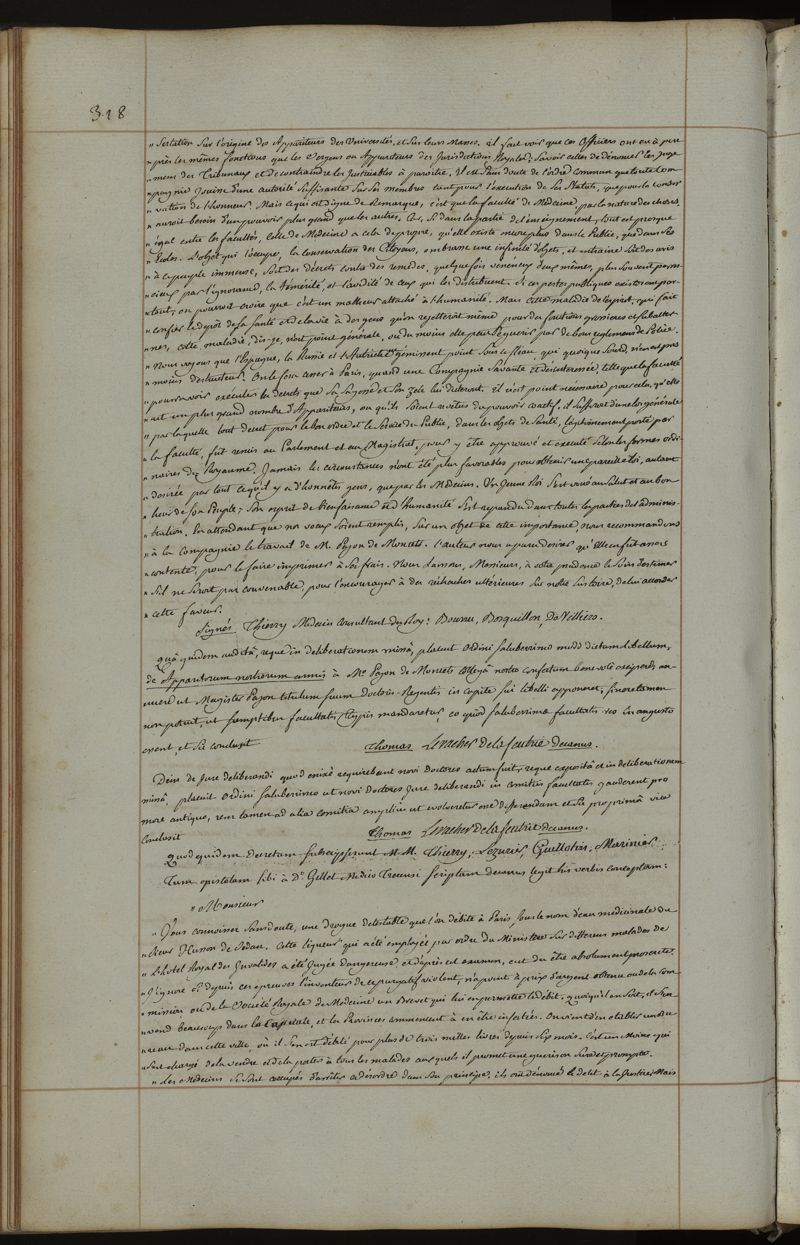 318
" Sertation Sur l'origine des Appariteurs des Universités, et Sur leurs Masses, il fait voir que ces Officiers ont eu à peu
" près les mêmes fonctions que les Sergens ou Appariteurs des Jurisdictions Royales; Savoir celles de dénoncer les juge
" mens des Tribunaux et de contraindre les Justiciables à paroitre. Il est Sans doute de l'ordre commun que toute Com
" pagnie jouisse d'une autorité Suffisante Sur Ses membres tant pour l'execution de Ses Statuts, que pour la conser
" vation de l'honneur. Mais ce qui est digne de Remarque, c'est que la faculté de Médecine, par la nature des choses,
" auroit besoin d'un pouvoir plus grand que les autres. Car, Si dans la partie de l'enseignement, tout est presque
" égal entre les facultés, Celle de Médecine a cela de propre, qu'elle existe encore plus dans le Public, que dans Ses
" Ecoles. L'objet qui l'occupe, la conservation des Citoyens, embrasse une infinité d'objets, et entraine Soit des avis
" à ce peuple immense, Soit des décrets contre des remedes, quelquefois vénéneux d'eux mêmes, plus Souvent perni
" cieux par l'ignorance, la témérité, et l'avidité de ceux qui les distribuent. Si ces pestes publiques existoient par-
" tout, on pourroit croire que c'est un malheur attaché à l'humanité. Mais cette maladie de l'esprit, qui fait
" confier le depôt de la Santé et de la vie à des gens qu'on rejetteroit même pour des fonctions grossieres et subalter-
" nes, cette maladie, dis-je, n'est point générale, ou du moins elle peut Se guerir par de bons reglemens de Police.
" Nous voyons que l'Espagne, la Russie et l'Autriche ne gémissent point Sous ce fléau, qui quoique Sourd, n'en est pas
" moins destructeur. On le fera cesser à Paris, quand une Compagnie Savante et désinteressée, telle que la faculté
" pourra voir executer les decrets que Sa Sagesse et Son zele lui dicteront. Il n'est point nécessaire pour cela, qu'elle
" ait un plus grand nombre d'Appariteurs, ou qu'ils Soient revêtus du pouvoir coactif. il Suffiroit d'une loi générale
" par laquelle tout decret pour le bon ordre et le Service du Public, dans les objets de Santé, légitimement porté par
" la faculté, fut remis au Parlement et au Magistrat, pour y être approuvé et executé Selon les formes ordi
" naires du Royaume. Jamais les circonstances n'ont été plus favorables pour obtenir une pareille Loi, autant
" desirée par tout ce qu'il y a d'honnêtes gens, que par les Médecins. Un Jeune Roi S'est voué au Salut et au bon
" heur de Son Peuple; Son esprit de bienfaisance et d'humanité S'est répandu dans toutes les parties de l'adminis-
" tration. En attendant que nos voeux Soient remplis, Sur un objet de cette importance, nous recommandons
" à la Compagnie le travail de M. Pajon de Moncets. L'auteur nous a paru desirer qu'elle en fut assés
" contente, pour le faire imprimer à Ses frais. Nous laissons, Messieurs, à votre prudence le Soin d'estimer
" S'il ne Seroit pas convenable, pour l'encourager à des recherches ultérieures Sur notre histoire, de lui accorder
" cette faveur.
Signés Thierry Médecin consultant du Roy: Bourru, Bosquillon, De Villiers.
Quâ quidem auditâ, reque in deliberationem missâ, placuit Ordini Saluberrimo modò dictum Libellum,
de Apparitorum nostrorum armis à Mro Pajon de Moncets Collegâ nostro confectum bene volè excipere, an-
nuere ut Magister Pajon titulum Suum Doctoris Regentis in capite Sui libelli apponeret, Si voret tamen
non potuit, ut Sumptibus facultatis Typis mandaretur, eo quod Saluberrimæ facultatis res in angusto
essent, et Sic conclusit Thomas Levacher de la feutrie Decanus.
Dein de Jure deliberandi quod enixè requirebant novi Doctores actum fuit, reque expositâ et in deliberationem
missâ, placuit Ordini Saluberrimo ut novi Doctores Jure deliberandi in comitiis facultatis gauderent pro
more antiquo, rem tamen ad alia comitia amplius ut evolveretur esse differendam et Sic pro primâ vice
conclusit Thomas Levacher de la feutrie Decanus.
Quod quidem decretum Subscripserunt M.M. Thierry, Lezurier, Guillotin, Marinier.
Tum epistolam Sibi à Do Gellet Medico Trecensi Scriptam decanus legit his verbis conceptam:
" Monsieur
" Vous connoissez Sans doute, une drogue detestable que l'on débite à Paris Sous le nom d'eau médicinale du
" Sieur Husson de Sedan. Cette liqueur qui a été employée par ordre du Ministere Sur differens malades de
" l'hôtel Royal des Invalides a été jugée dangereuse, et d'après cet examen, eut du être absolument proscrite.
" J'ignore Si depuis ces epreuves l'inventeur de ce purgatif violent, n'a point à prix d'argent obtenu ou de la Com
" mission ou de la Société Royale de Médecine un Brevet qui lui en permette le debit; quoiqu'il en Soit, il S'en
" vend beaucoup dans la Capitale, et les Provinces commencent à en être infectées. On vient d'en etablir un bu
" reau dans cette ville, où il S'en est débité pour plus de trois milles livres depuis Six mois. C'est un Moine qui
" S'est chargé de la vendre et de la porter à tous les malades auxquels il promet une guerison Sure et prompte.
" Les Médecins Se Sont occupés d'arrêter ce désordre dans Son principe, ils ont dénoncé le debit à la Justice. Mais